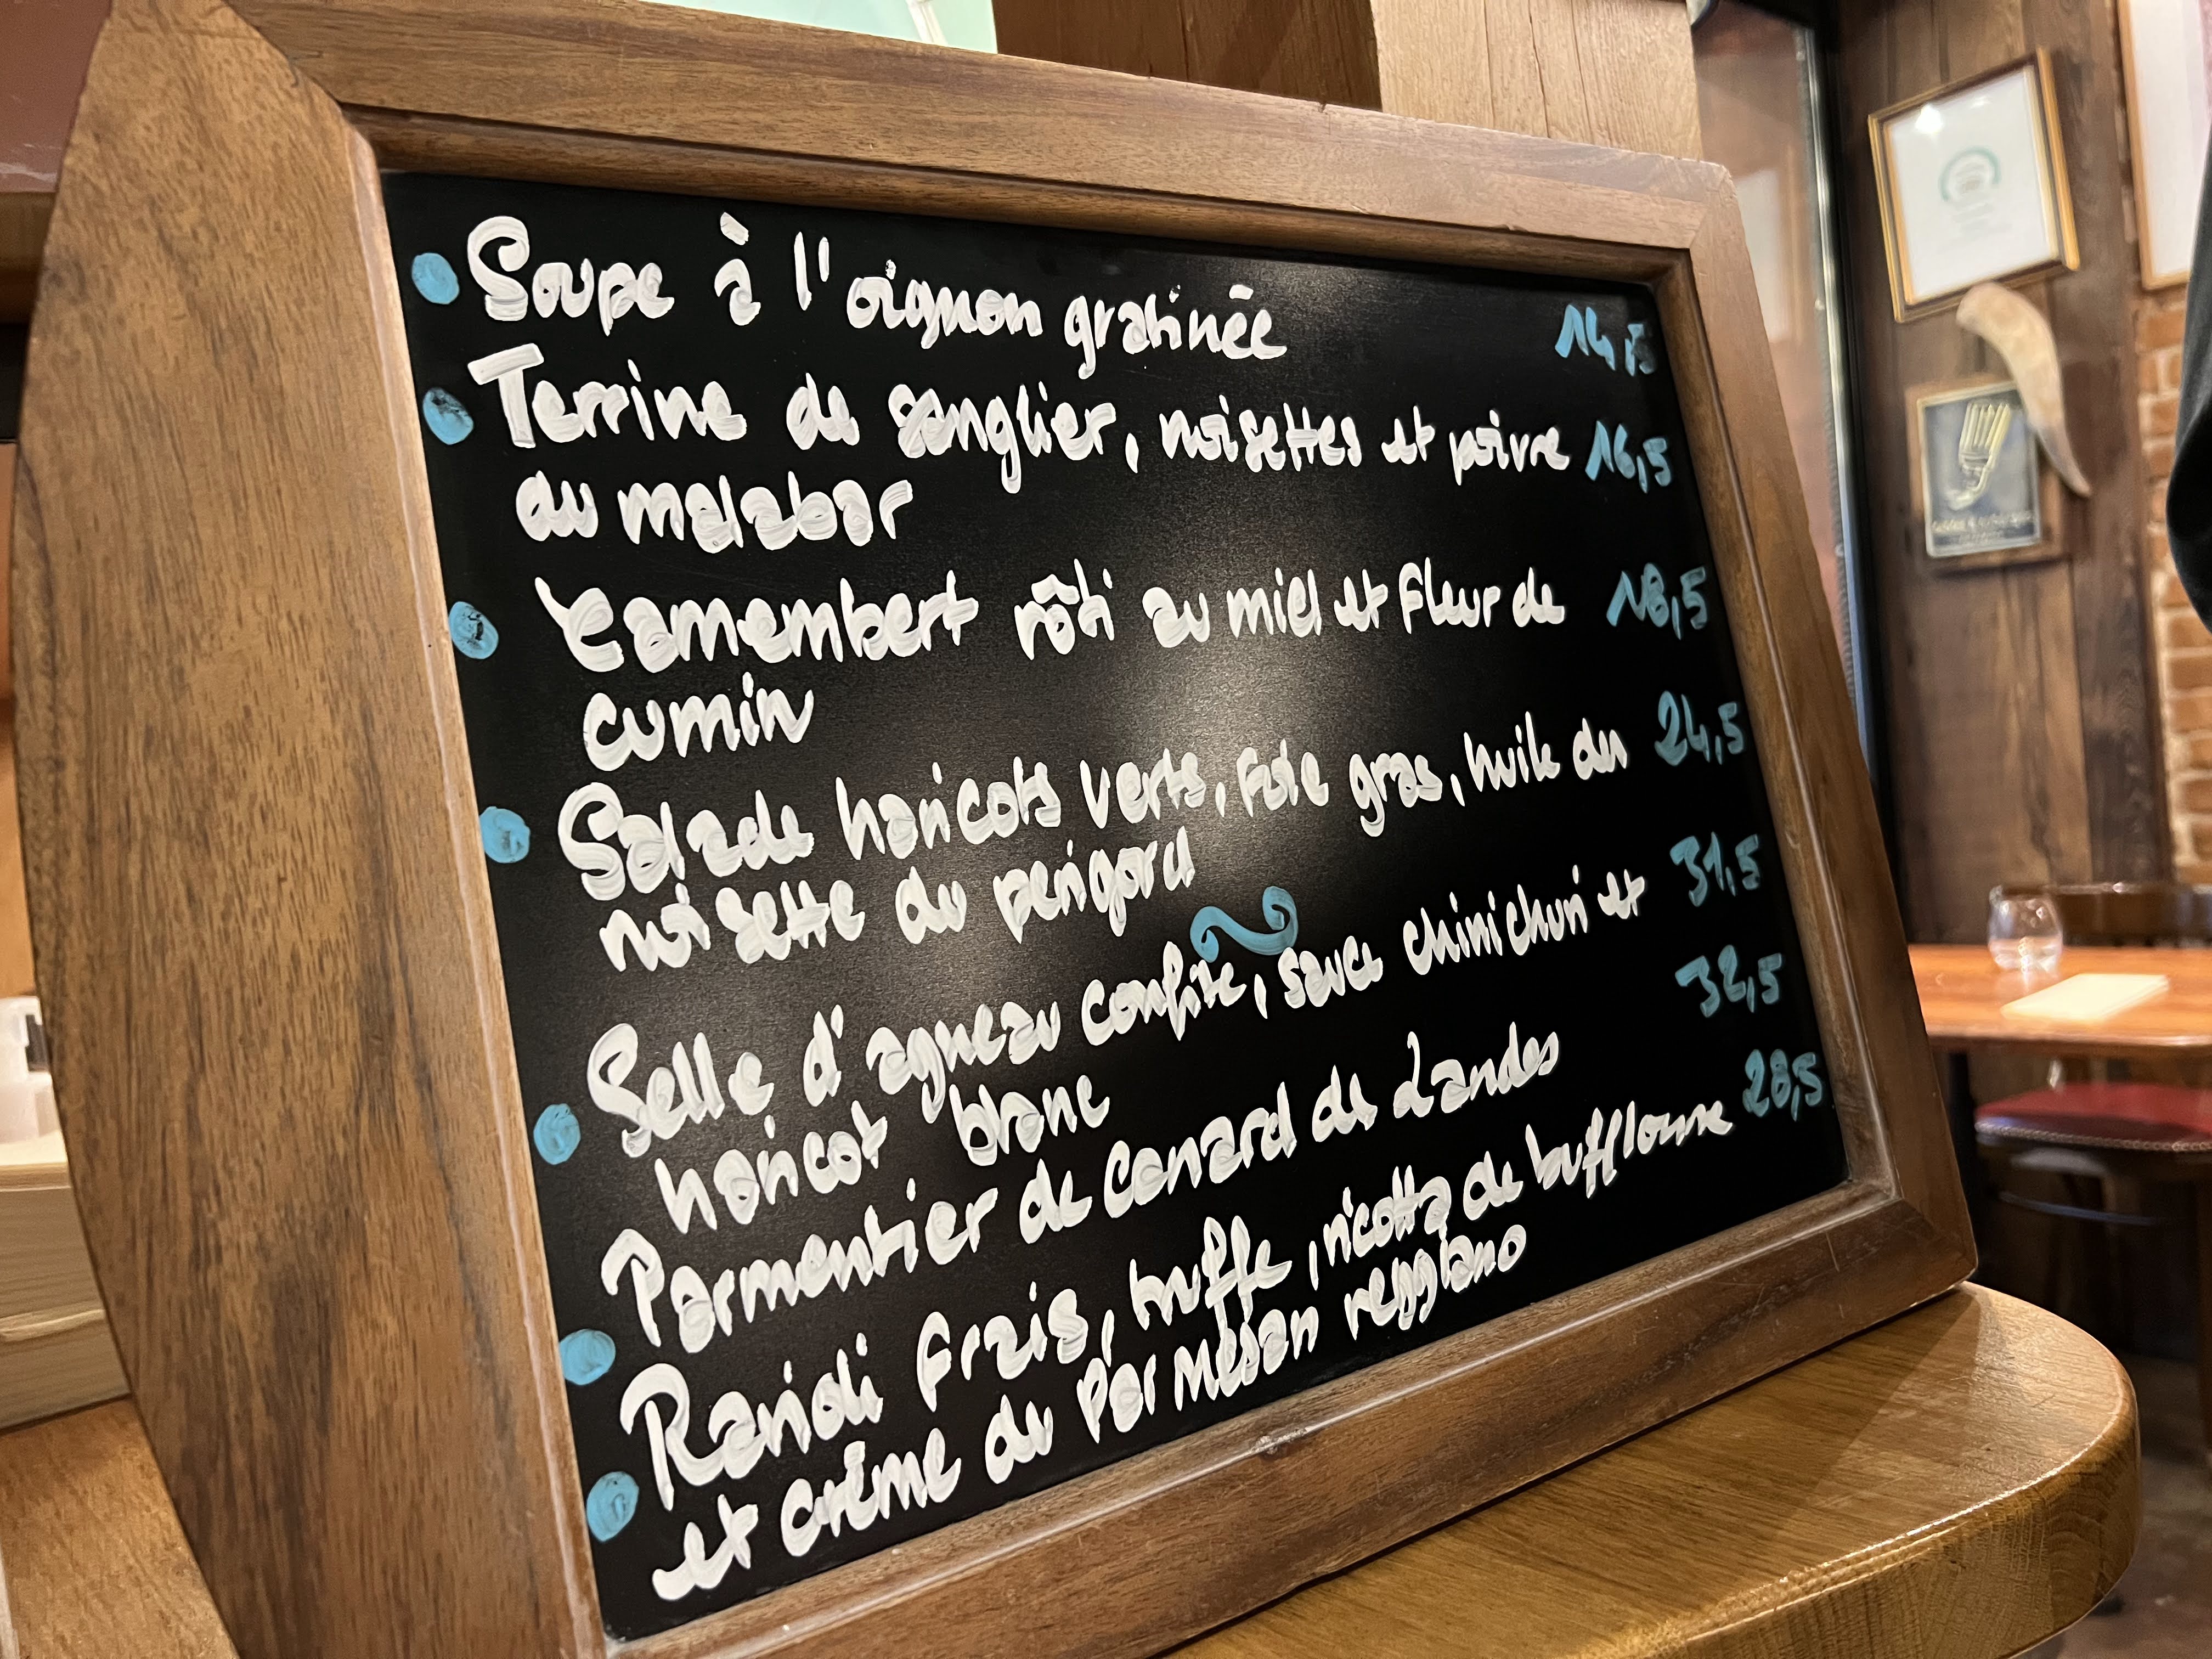 Soupe à l'oignon gratinée 14,5
Terrine de sanglier, noisettes et poivre 16,5
du malabar
Camembert rôti au miel et fleur de 18,5
cumin
Salade haricots verts, foie gras, huile du 24,5
noisette du perigord
Selle d'agneau confite, sauce chimichuri et 31,5
haricot blanc
Parmentier de canard de Landes 32,5
Ravioli frais, truffe, ricotta de bufflonne 28,5
et crème du parmesan reggiano